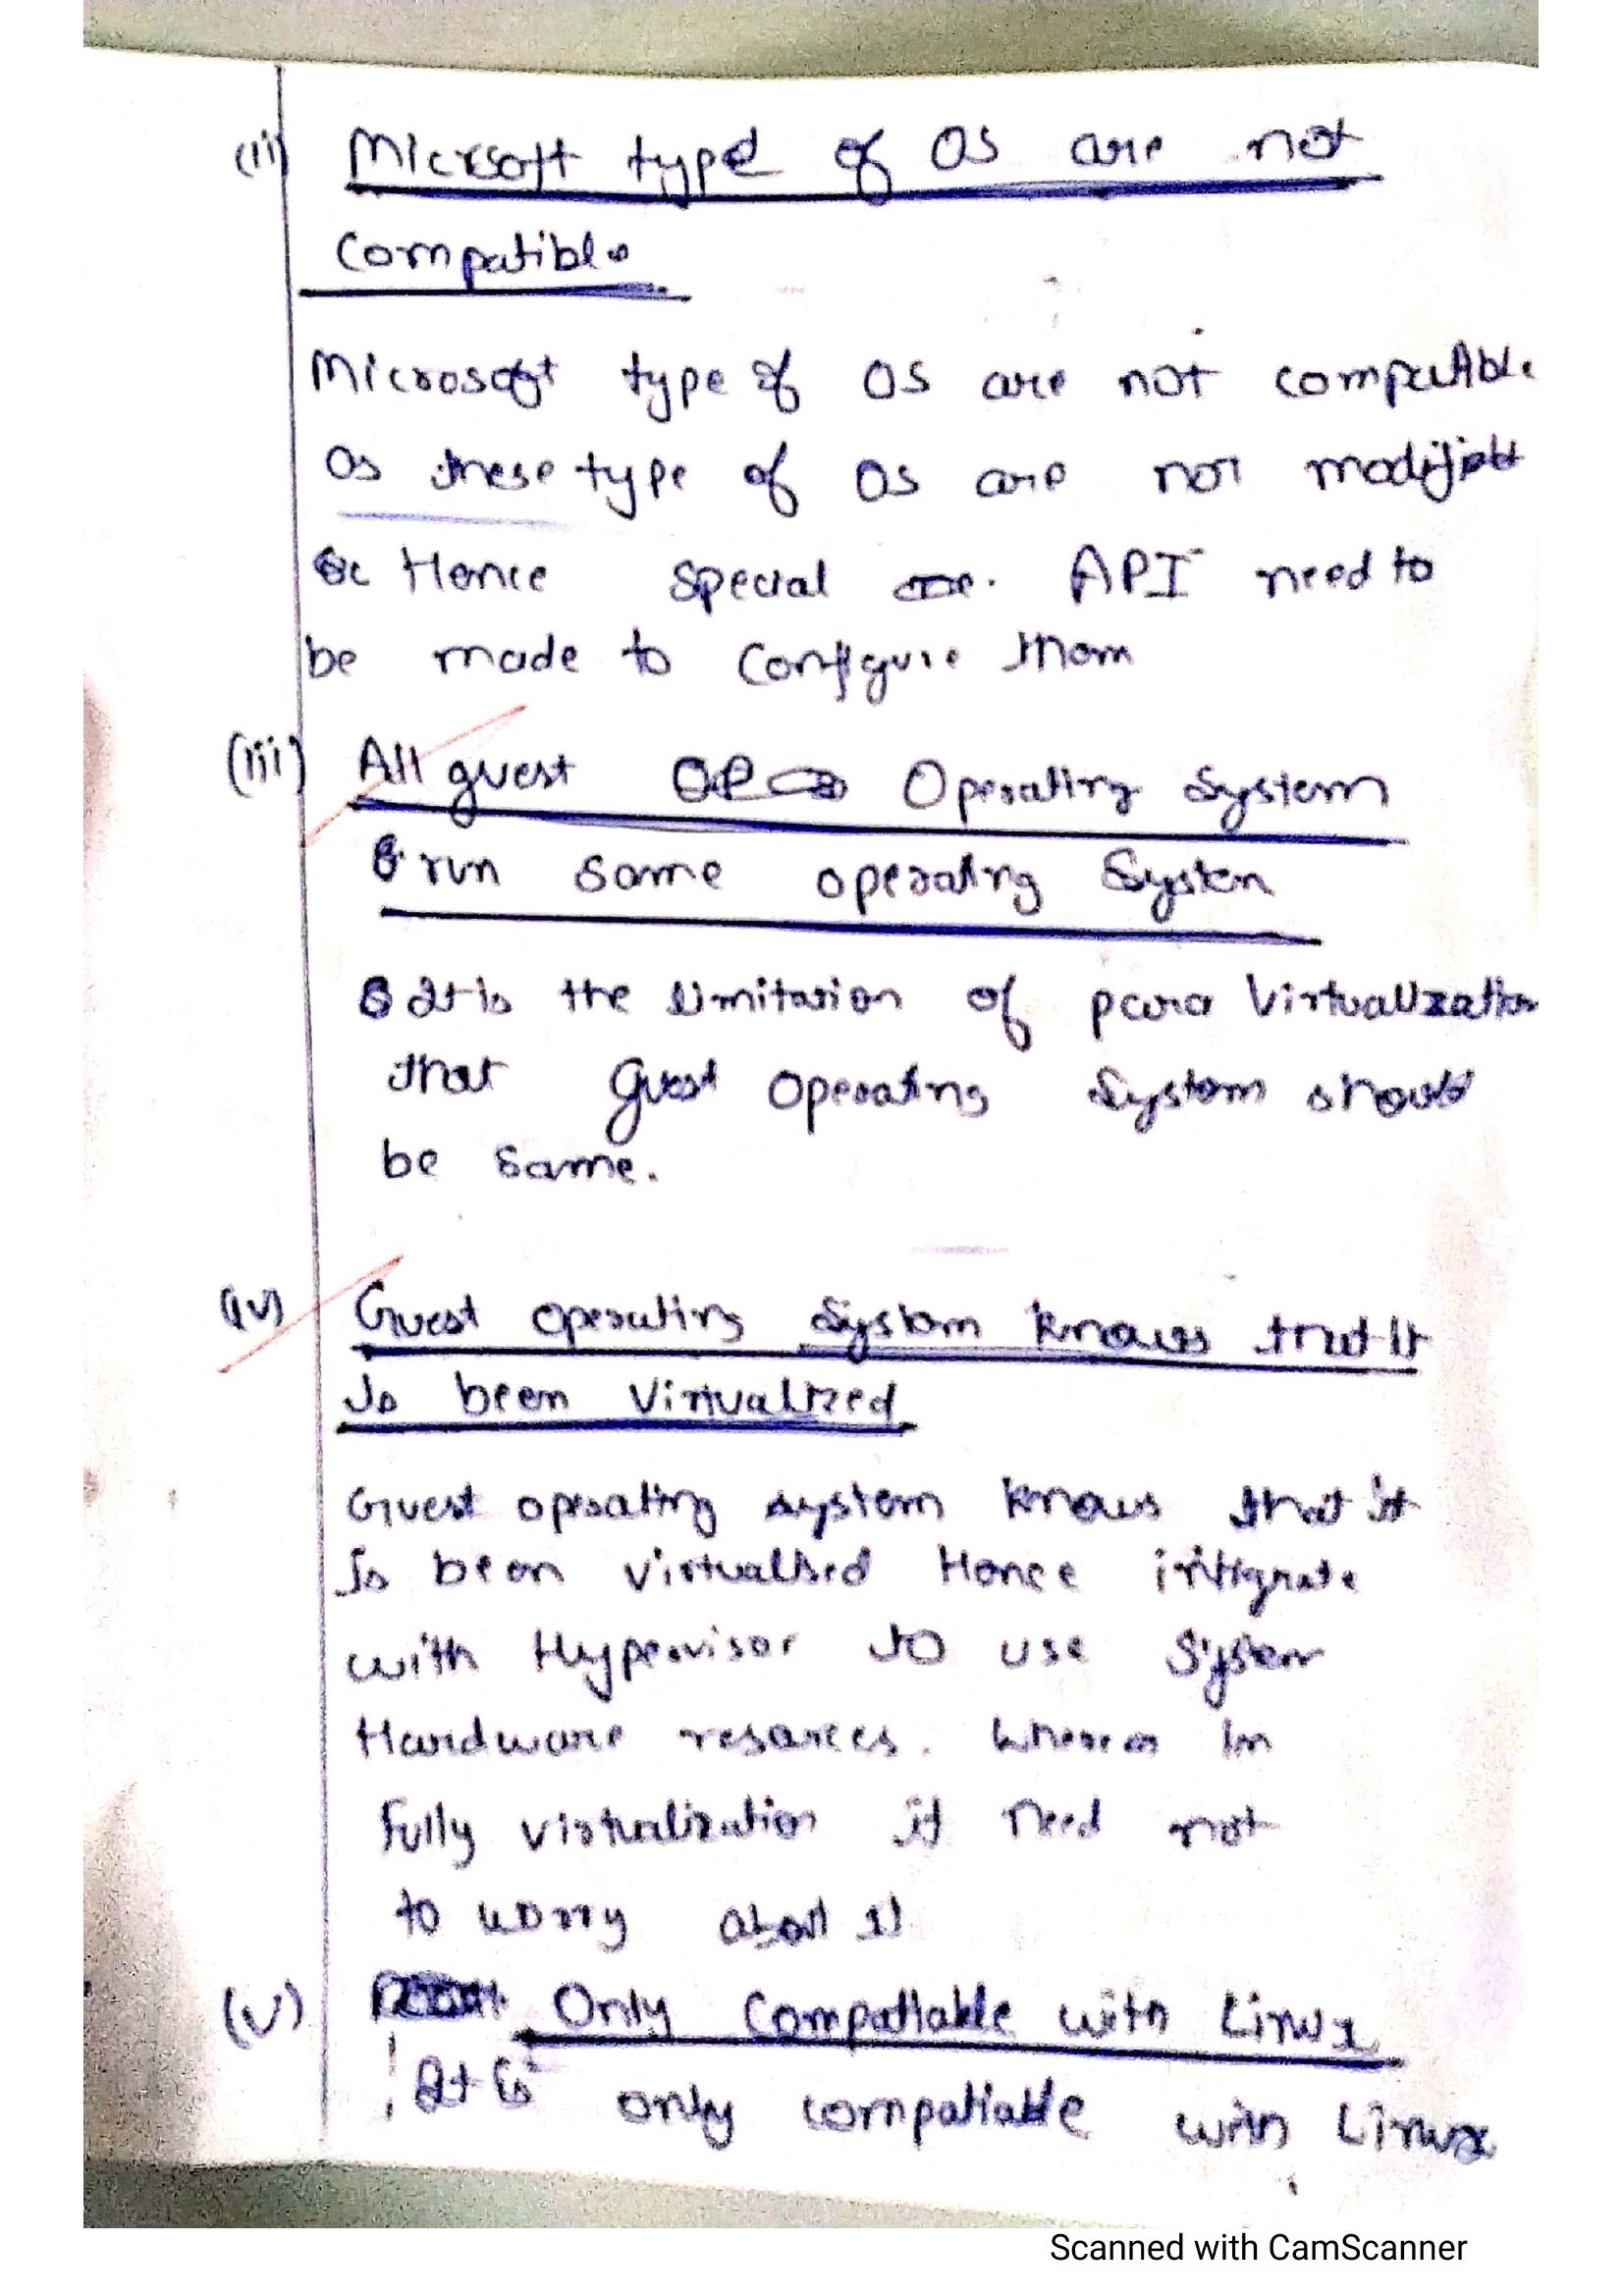 (ii) Micrsoft type of OS are not
Compatible
Microsoft type of OS are not compatible
as these type of OS are not
Hence special API need to
be made to configure them
(iii) All guest Operating System
run same operating System
It is the limitation of para Virtualization
that guest operating System should
be same.
(iv) Guest operating System knows that it
is been Virtualized
Guest operating system knows that it
is been virtualised Hence intigrate
with Hypervisor to use System
Hardware resources. Whereas in
fully virtualization it need not
to worry about it
(v) Only Compatiable with Linux
It is only compatiable with Linux
Scanned with CamScanner